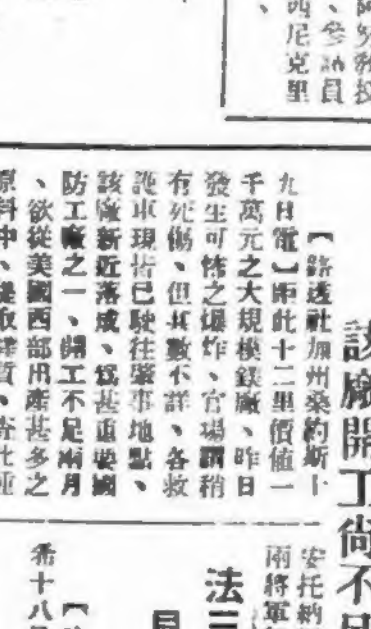 努教授
、參議員
西尼克里
、
該廠開工尚不足
【路透社加州桑約斯十
九日電】距此十二里價值一
千萬元之大規模鎂廠、昨日
發生可怖之爆炸、官場謂稍
有死傷、但其數不詳、各救
護車現皆已駛往肇事地點、
該廠新近落成、爲甚重要國
防工廠之一、開工不足兩月
、欲從美國西部所產甚多之
原料中、提取鎂質、此重
安托納
兩將軍
法三
希十八